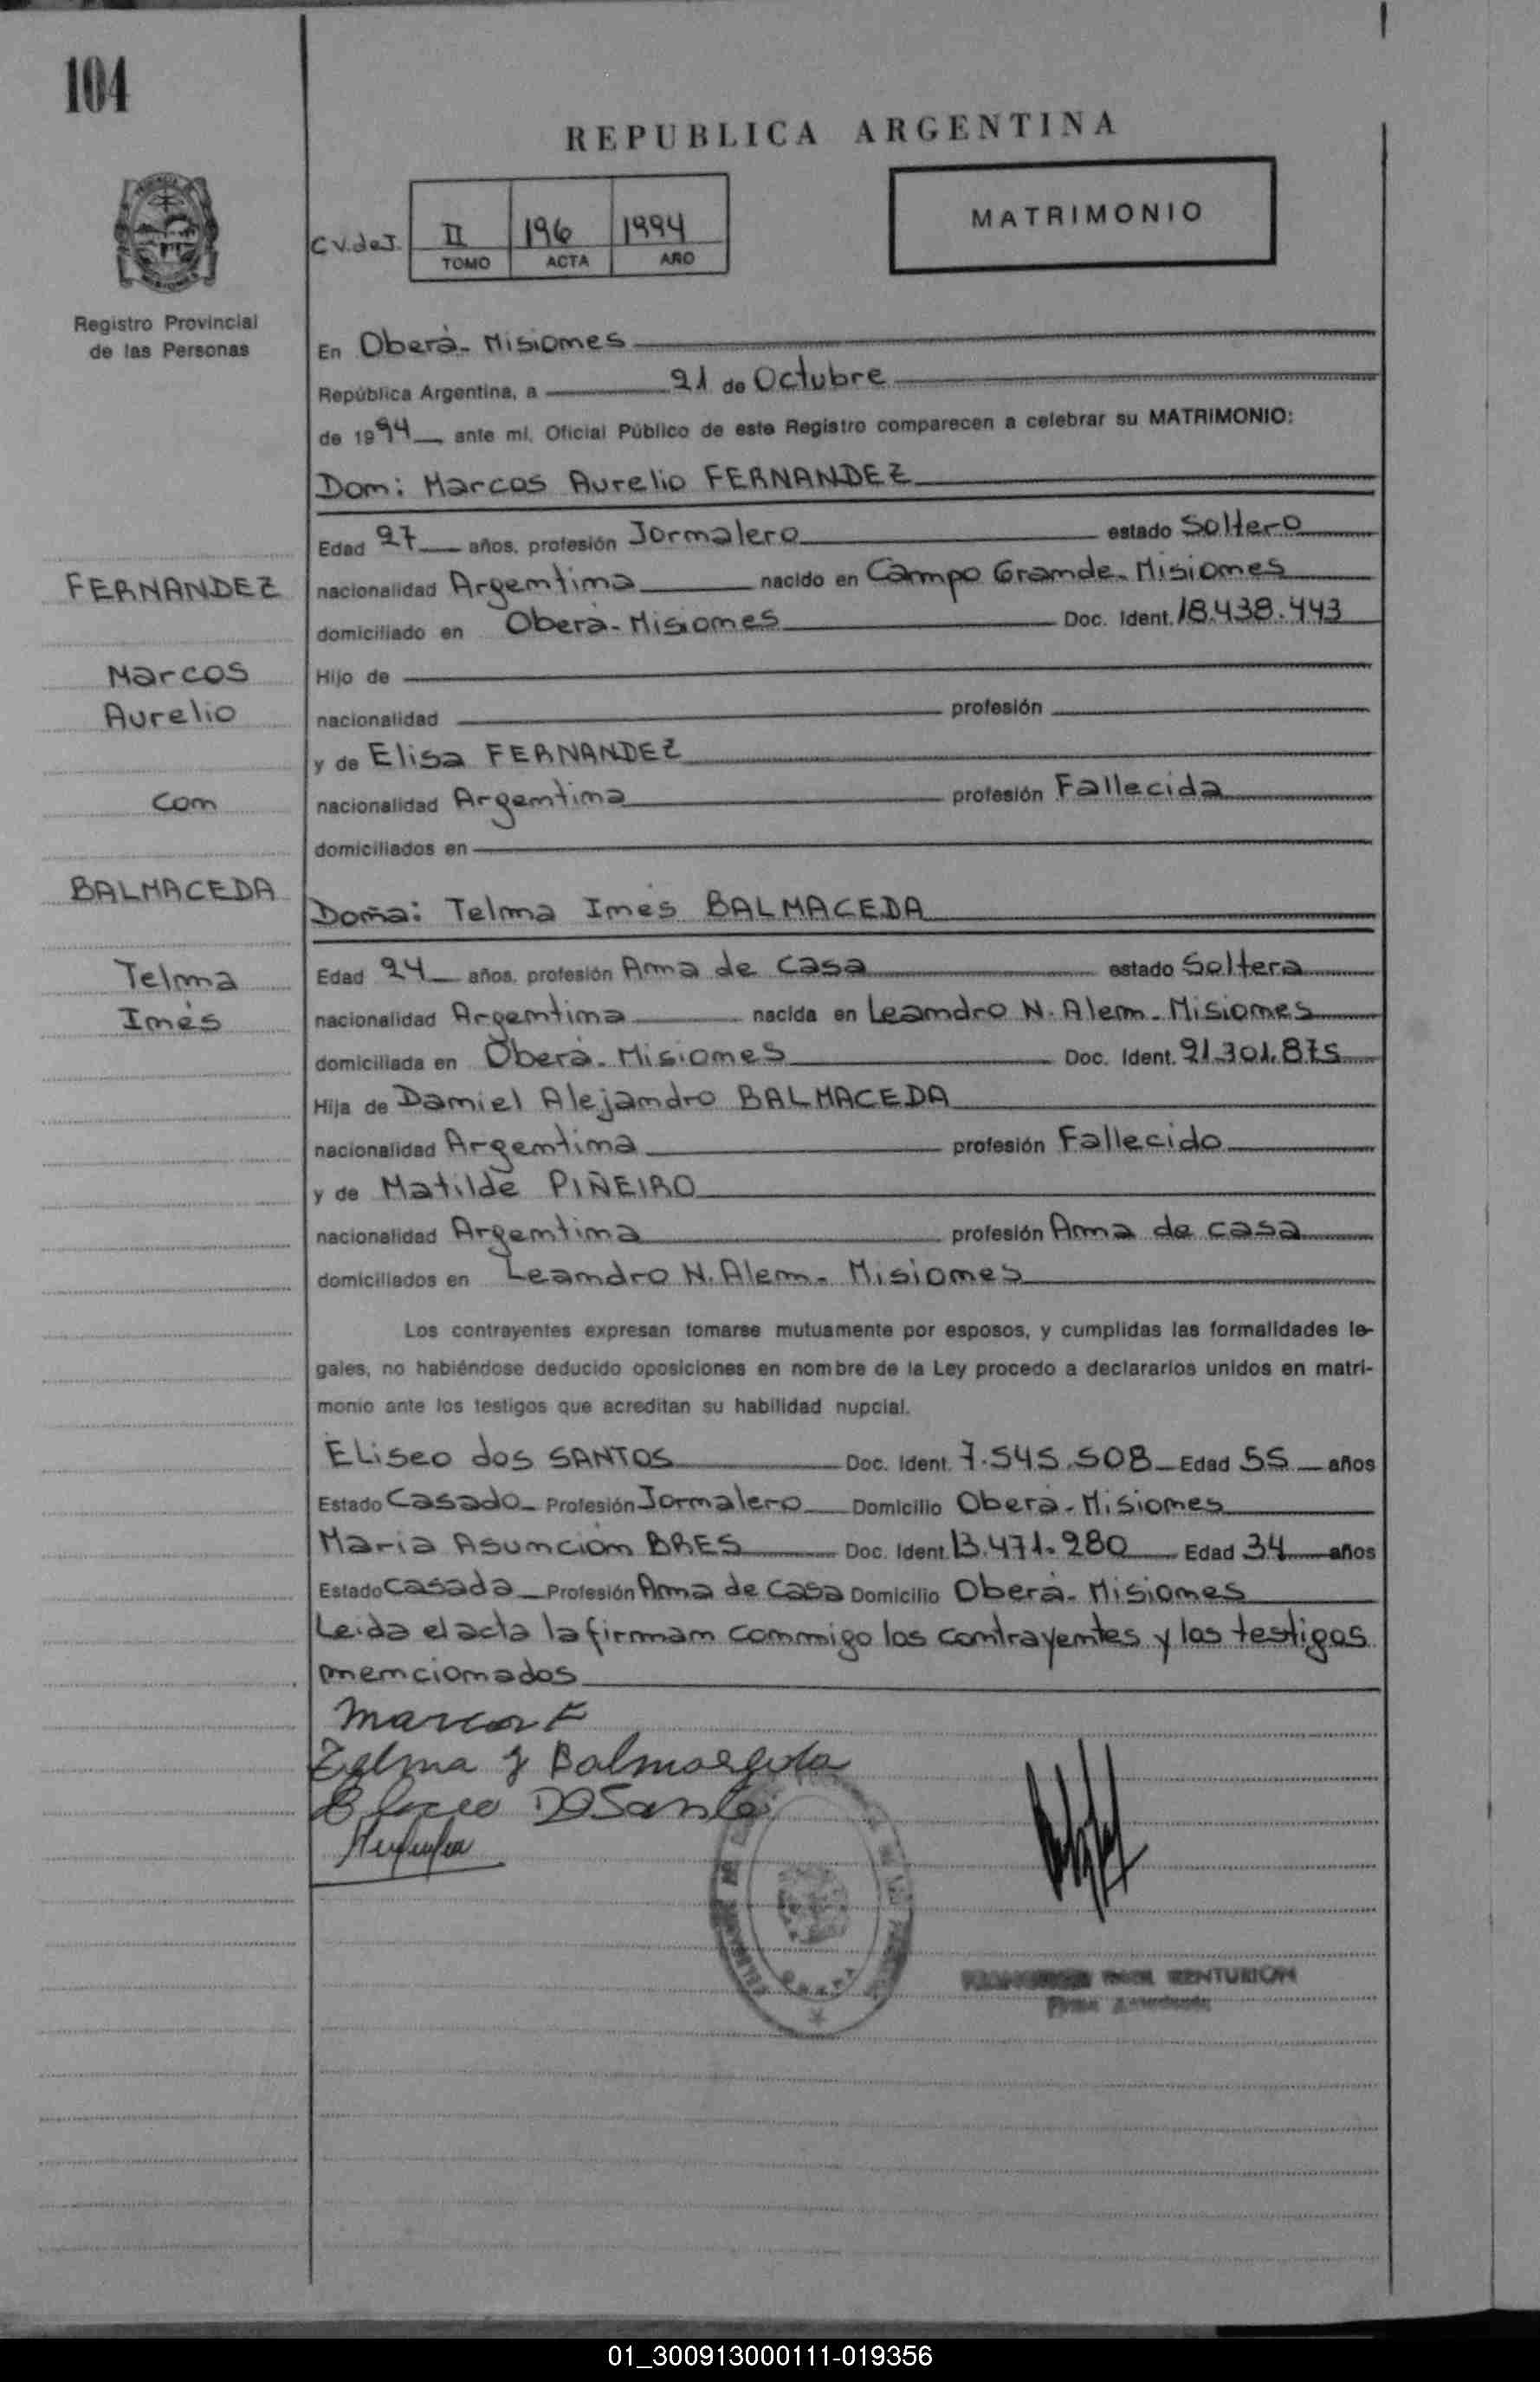 104
REPUBLICA ARGENTINA
MATRIMONIO
C.V.deI. II 196 1994
TOMO ACTA AÑO
Registro Provincial
de las Personas
En Oberá - Misiones
República Argentina, a 21 de Octubre
de 1994 ante mí, Oficial Público de este Registro comparecen a celebrar su MATRIMONIO:
Don: Marcos Aurelio FERNANDEZ
Edad 27 años, profesión Jornalero estado Soltero
nacionalidad Argentina nacido en Campo Grande - Misiones
domiciliado en Oberá - Misiones Doc. Ident. 18.438.443
Hijo de
nacionalidad profesión
y de Elisa FERNANDEZ
nacionalidad Argentina profesión Fallecida
domiciliados en
FERNANDEZ
Marcos
Aurelio
con
BALMACEDA
Telma
Inés
Doña: Telma Inés BALMACEDA
Edad 24 años, profesión Ama de casa estado Soltera
nacionalidad Argentina nacida en Leandro N. Alem - Misiones
domiciliada en Oberá - Misiones Doc. Ident. 21.301.875
Hija de Daniel Alejandro BALMACEDA
nacionalidad Argentina profesión Fallecido
y de Matilde PIÑEIRO
nacionalidad Argentina profesión Ama de casa
domiciliados en Leandro N. Alem - Misiones
Los contrayentes expresan tomarse mutuamente por esposos, y cumplidas las formalidades le-
gales, no habiéndose deducido oposiciones en nombre de la Ley procedo a declararlos unidos en matri-
monio ante los testigos que acreditan su habilidad nupcial.
Eliseo dos SANTOS Doc. Ident. 7.545.508 Edad 55 años
Estado Casado Profesión Jornalero Domicilio Oberá - Misiones
Maria Asunción BRES Doc. Ident. 13.471.280 Edad 34 años
Estado Casada Profesión Ama de Casa Domicilio Oberá - Misiones
Leida el acta la firman conmigo los contrayentes y los testigos
mencionados
Marcos F
Telma I Balmaseda
CENTURION
01_300913000111-019356